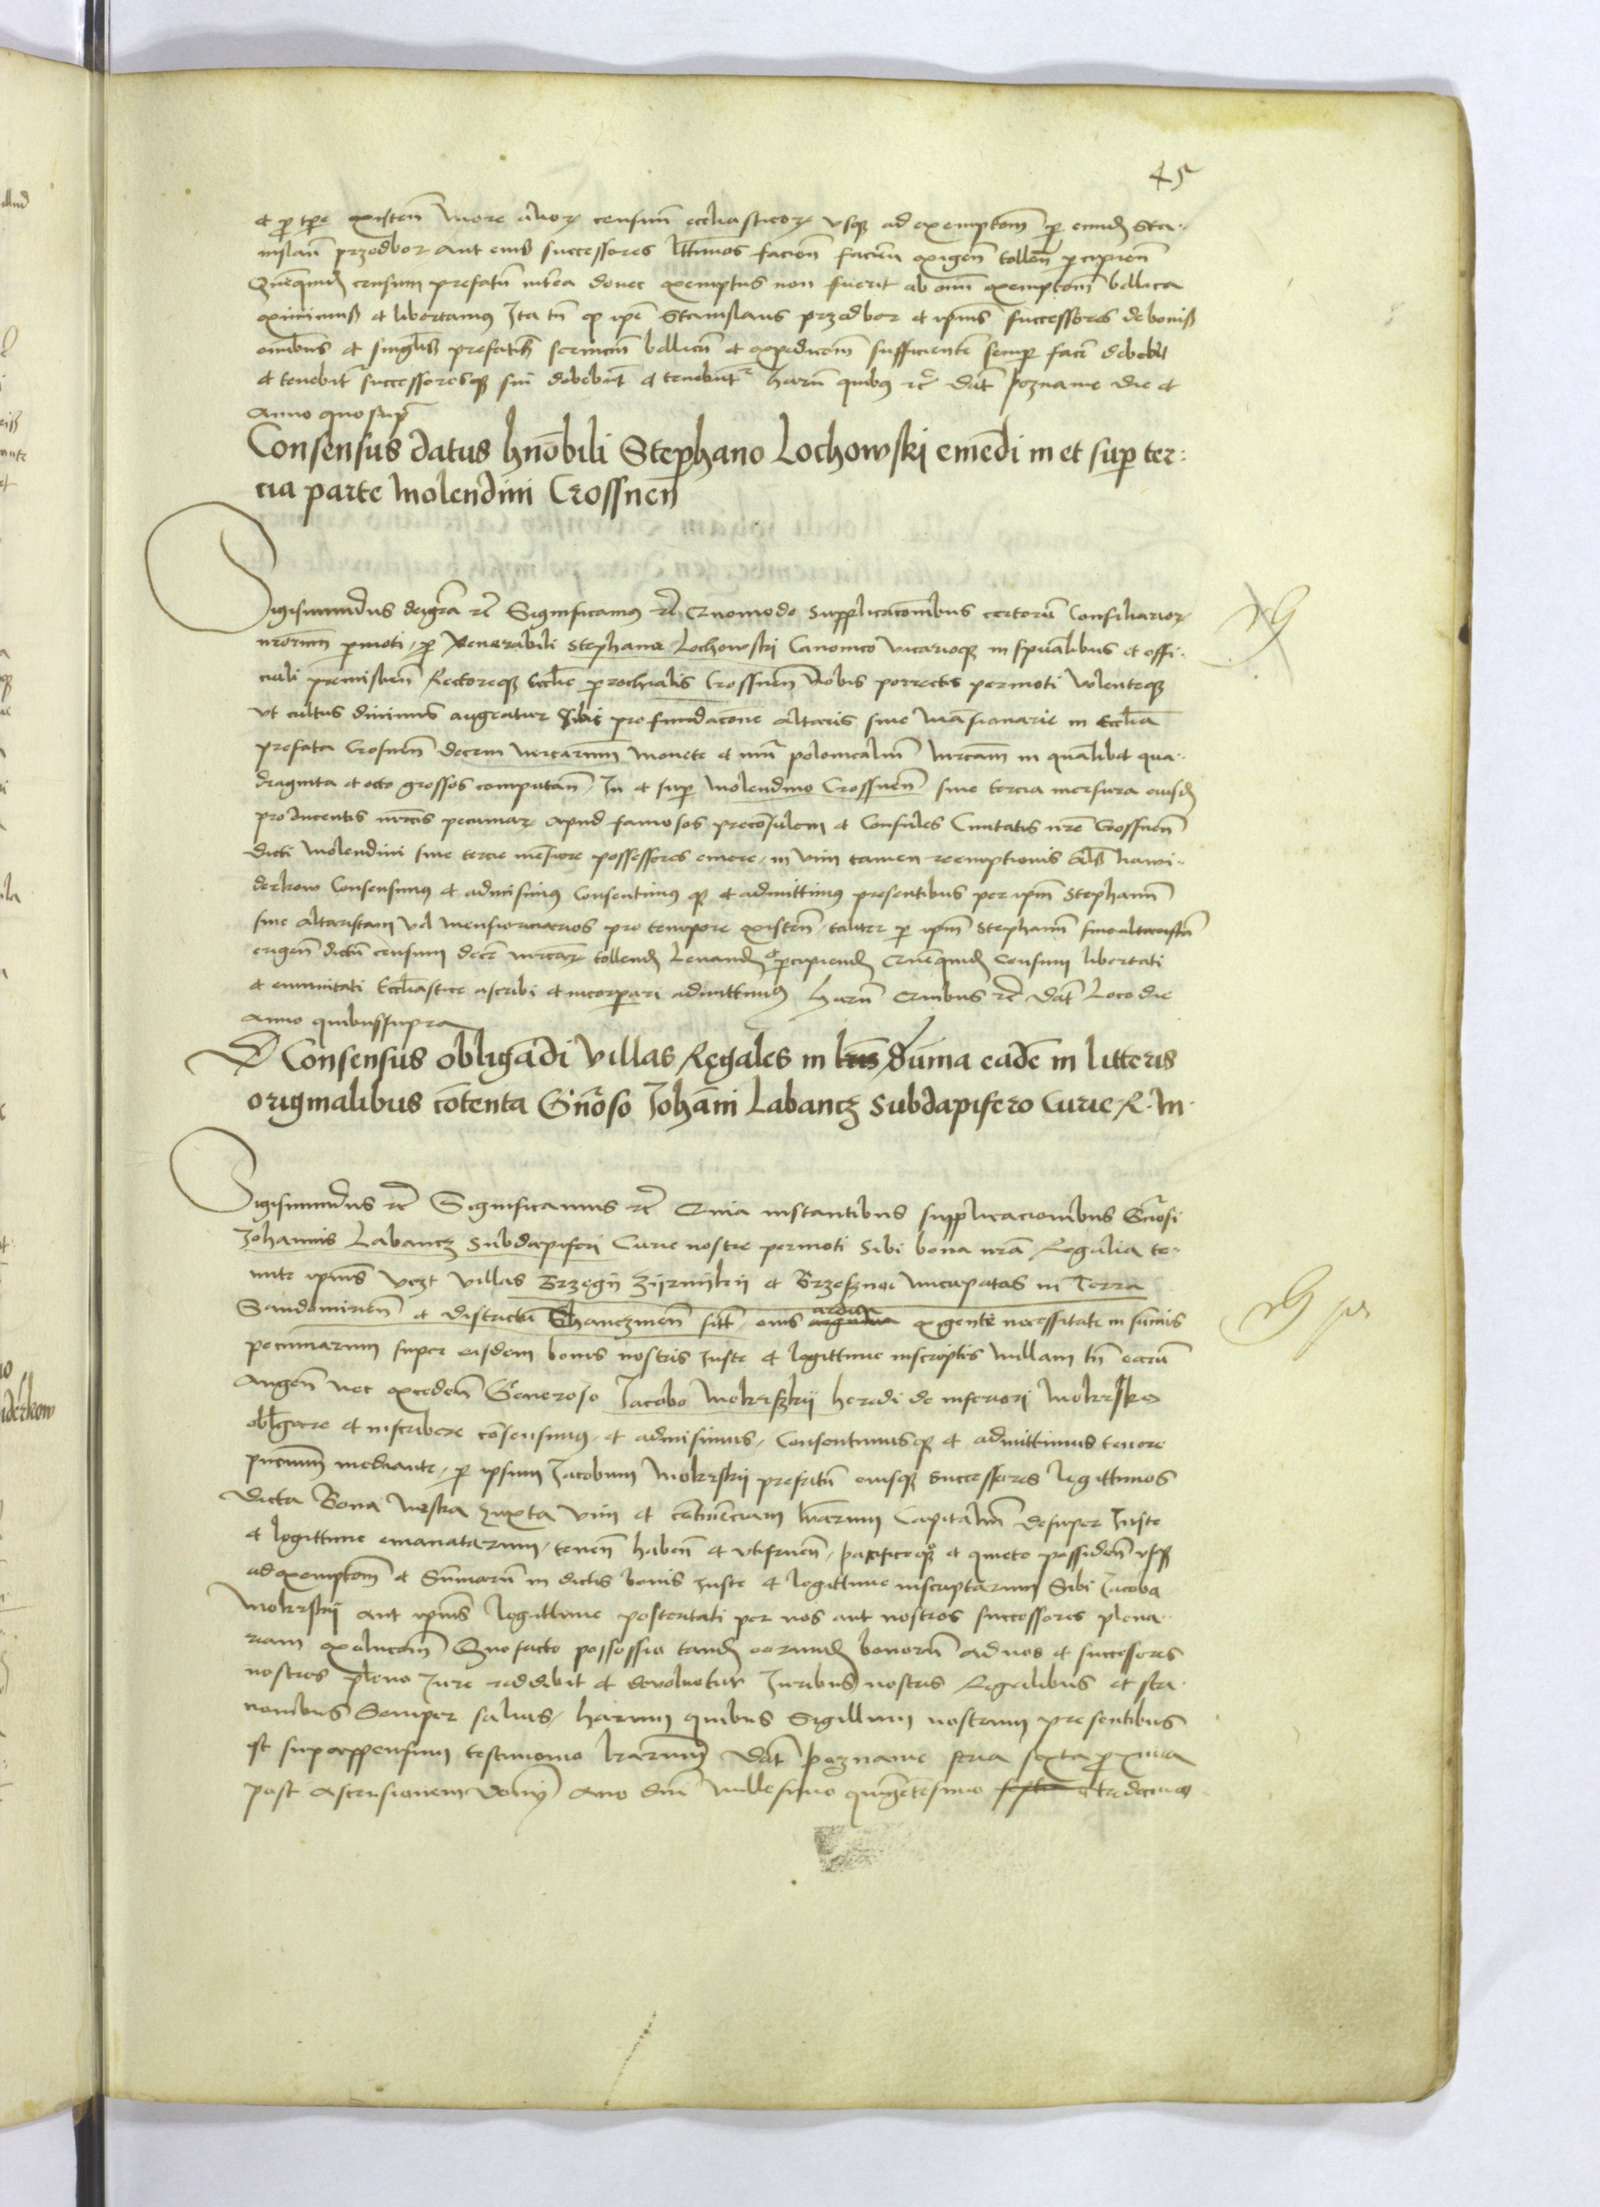 45
et p tpe existen more alior censuu eccliasticor vsq ad exemptom p eund Sta-
nislau przedbor aut eius successores lttimos facien faciem exigen tollen pcipien
Quequid censum prefatu intea donec exemptus non fuerit ab omi exemptom bellica
eximimus et libertamus Ita tn q ipe Stanislaus przedbor et ipius successores de bonis
omibus et singlis prefatis seruiciu bellicu et expedicom sufficiente semp face debebit
et tenebit successoresq sui debebut et tenebut haru quibus rc dat poznanie die et
Anno quo supra
Consensus datus hnobili Stephano Lochowski emedi in et sup ter-
cia parte molendini Crossnen
Sigismundus deigra rc Significamus rc Quomodo supplicacombus certoru Consiliarior
nrorum pmoti p Venerabili Stephano Lochowski Canonico vicarioq in spualibus et offi-
ciali premislien Rectoreq Ecclie prochialis Crossnen Nobis porrectis permoti volentesq
vt cultus diuinus augeatur Sibi pro fundacone altaris siue Mansionarie in Ecclia
prefata Crosnen decem mrcarum monete et nui polonicalium mrcam in qualibet qua-
draginta et octo grossos computan In et sup Molendino Crossnen siue tercia mensura eiusd
pro ducentis mrcis pecuniar apud famosos preconsulem et Consules Ciuitatis nre Crossnen
dicti Molendini siue tercie mensure possessores emere in vim tamen reemptionis als nawi-
derkow Consensimus et admisimus Consentimus q et admittimus presentibus per ipm Stephanu
siue altaristam vel mensionarios pro tempore existen taliter p ipm Stephanu siue altarista
erigen dictu censum dece mrcar tollend Leuand et pcipiend Quequid Censum libertati
et emunitati Ecclastice ascribi et incorpari admittimus haru Quibus rc dat Loco die
Anno quibus supra
Consensus obligandi villas Regales in lris suma eade in litteris
originalibus cotenta Gnroso Johani Labancz Subdapifero Curie R. M.
Sigismundus rc Significamus rc Quia instantibus supplicacionibus Gnrosi
Johannis Labancz Subdapiferi Curie nostre permoti Sibi bona nra Regalia te-
nute ipius vczt villas Brzegii Zijrnijkij et Brzesznoi nucupatas in Terra
Sandomirien et districtu Shanczinen sitt eius ardua exigente necessitate in sumis
pecuniarum super eisdem bonis nostris Juste et legittime inscriptis nullam tn earu
Augen nec exceden Generoso Jacobo Mokrszkij heredi de inferiori Mokrsko
obligare et inscribere consensimus et admisimus Consentimusq et admittimus tenore
pncium mediante p ipsum Jacobum Mokrskij prefatu eiusq successores legittimos
dicta Bona nostra Juxta vim et continenciam lrarum Capitalium desuper Juste
et legittime emanatarum tenen haben et vtifruen pacificeq et quiete possiden vsq
ad exemptom et Sumaru in dictis bonis Juste et legittime inscriptarum Sibi Jacobo
Mokrskij aut ipius legittime posteritati per nos aut nostros successores plena-
riam exolucom Quo facto possessio tand eorund bonoru ad nos et successores
nostros pleno Jure reddibit et deuoluetur Juribus nostris Regalibus et sta-
cionibus Semper saluis harum quibus Sigillum nostrum presentibus
est supappensum testimonio lrarum Dat poznanie feria sexta proxima
post Ascensionem dominj Ano dni millesimo quingetesimo tredecimo